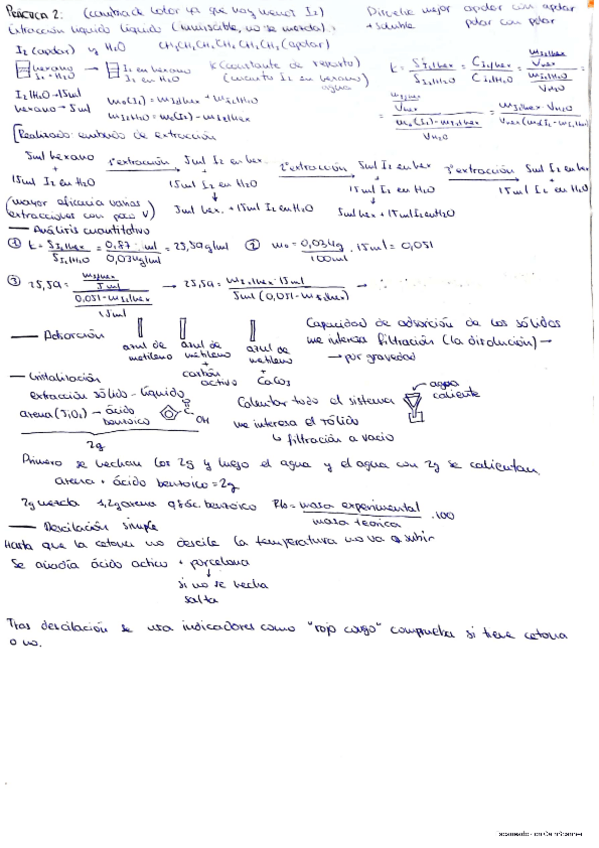 PRÁCTICA 2: (cambia de color ya que hay menos I₂) Disuelve mejor apolar con apolar
Extracción líquido líquido (inmiscible, no se mezcla) + soluble polar con polar
I₂ (apolar) y H₂O CH₃CH₂CH₂CH₂CH₂CH₃ (apolar)
hexano → I₂ en hexano K (constante de reparto)
I₂ + H₂O I₂ en H₂O (cuanto I₂ en hexano) agua
k = S I₂/hex / S I₂/H₂O = C I₂/hex / C I₂/H₂O = m I₂/hex / V hex / m I₂/H₂O / V H₂O =
I₂/H₂O → 15ml m₀(I₂) = m I₂/hex + m I₂/H₂O
hexano → 5ml m I₂/H₂O = m₀(I₂) - m I₂/hex
= m I₂/hex / V hex / m₀(I₂) - m I₂/hex / V H₂O = m I₂/hex · V H₂O / V hex (m₀(I₂) - m I₂/hex)
[Realizado: embudo de extracción
5ml hexano + 15ml I₂ en H₂O 1ª extracción → 5ml I₂ en hex. 15ml I₂ en H₂O 2ª extracción → 5ml I₂ en hex 15ml I₂ en H₂O 3ª extracción → 5ml I₂ en hex 15ml I₂ en H₂O
(mayor eficacia varias extracciones con poco V) 5ml hex. + 15ml I₂ en H₂O 5ml hex + 15ml I₂ en H₂O
— Análisis cuantitativo
① k = S I₂/hex / S I₂/H₂O = 0,87 / 0,034 g/ml = 25,59 g/ml ② m₀ = 0,034g / 100ml · 15ml = 0,051
③ 25,59 = m I₂/hex / 5ml / 0,051 - m I₂/hex / 15ml → 25,59 = m I₂/hex · 15ml / 5ml (0,051 - m I₂/hex) →
— Adsorción azul de metileno azul de metileno + carbón activo azul de metileno + CaCO₃ Capacidad de adsorción de los sólidos
me interesa filtración (la disolución) →
→ por gravedad
— Cristalización
extracción sólido - líquido Calentar todo el sistema → agua caliente
arena (SiO₂) — ácido benzoico OH me interesa el sólido
2g ↳ filtración a vacío
Primero se hechan los 2g y luego el agua y el agua con 2g se calientan.
arena + ácido benzoico = 2g
2g mezcla 1,2g arena ác. benzoico Rto = masa experimental / masa teórica · 100
— Descilación simple
Hasta que la cetona no descile la temperatura no va a subir
Se añadía ácido activo + porcelana
↓
si no se hecha
salta
Tras descilación se usa indicadores como "rojo congo" comprueba si tiene cetona
o no.